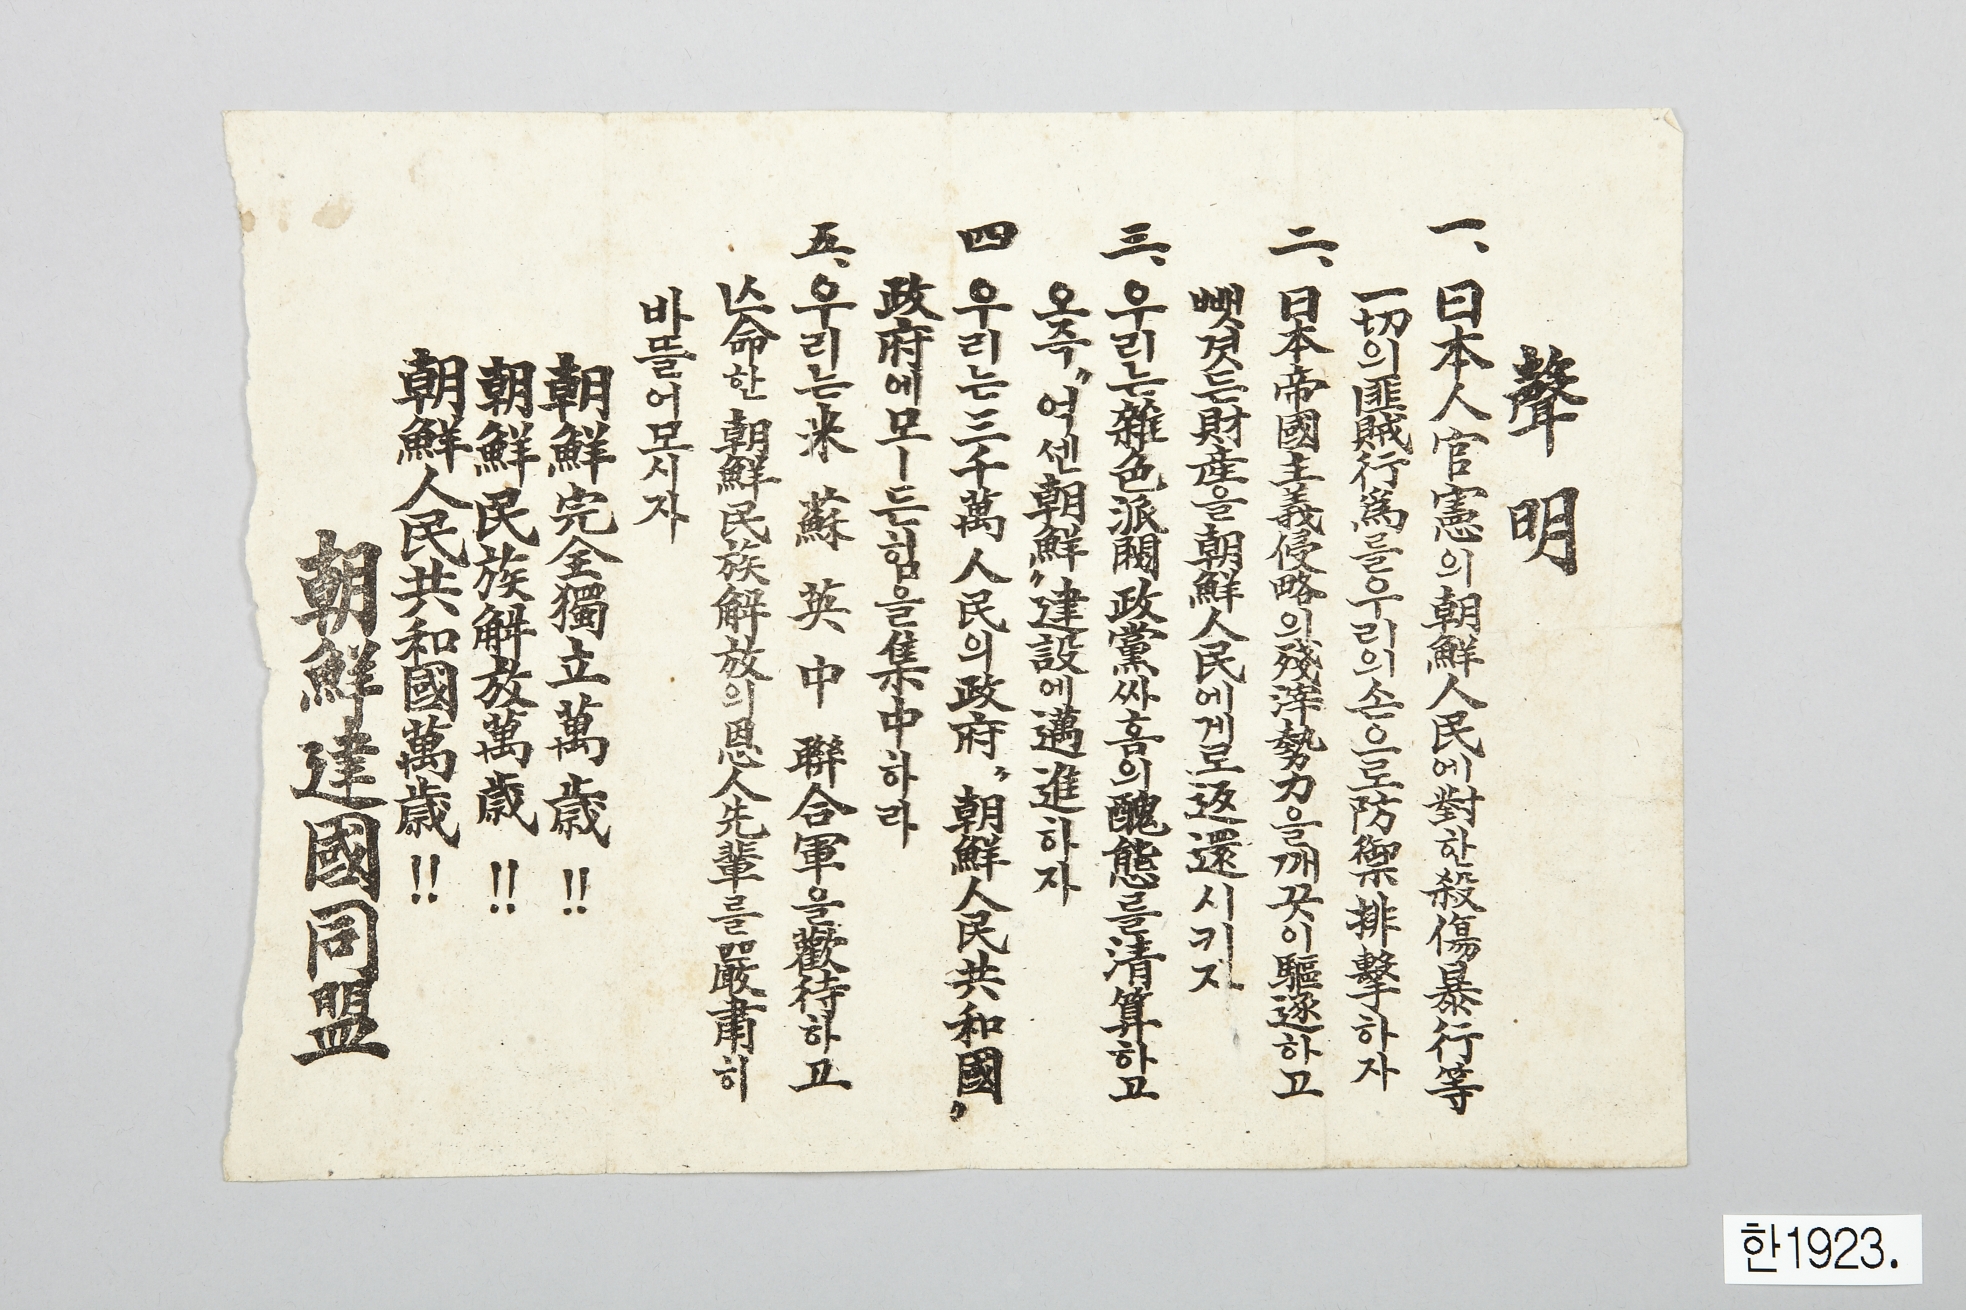 聲明
一、日本人官憲의朝鮮人民에對한殺傷暴行等
一切의匪賊行爲를우리의손으로防禦排擊하자
二、日本帝國主義侵略의殘滓勢力을깨끗이驅逐하고
뺏겻든財産을朝鮮人民에게로返還시키자
三、우리는雜色派閥政黨싸홈의醜態를淸算하고
오즉〃억센朝鮮〃建設에邁進하자
四 우리는三千萬人民의政府〃朝鮮人民共和國〃
政府에모ー든힘을集中하라
五、우리는米 蘇 英 中 聯合軍을歡待하고
亡命한朝鮮民族解放의恩人先輩를嚴肅히
바뜰어모시자
朝鮮完全獨立萬歲!!
朝鮮民族解放萬歲!!
朝鮮人民共和國萬歲!!
朝鮮建國同盟
한1923.